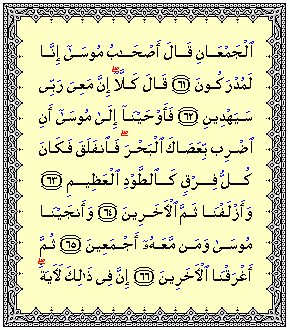 ٱلْجَمْعَانِ قَالَ أَصْحَـٰبُ مُوسَىٰٓ إِنَّا
لَمُدْرَكُونَ ﴿٦١﴾ قَالَ كَلَّآ ۖ إِنَّ مَعِىَ رَبِّى
سَيَهْدِينِ ﴿٦٢﴾ فَأَوْحَيْنَآ إِلَىٰ مُوسَىٰٓ أَنِ
ٱضْرِب بِّعَصَاكَ ٱلْبَحْرَ ۖ فَٱنفَلَقَ فَكَانَ
كُلُّ فِرْقٍ كَٱلطَّوْدِ ٱلْعَظِيمِ ﴿٦٣﴾
وَأَزْلَفْنَا ثَمَّ ٱلْـَٔاخَرِينَ ﴿٦٤﴾ وَأَنجَيْنَا
مُوسَىٰ وَمَن مَّعَهُۥٓ أَجْمَعِينَ ﴿٦٥﴾ ثُمَّ
أَغْرَقْنَا ٱلْـَٔاخَرِينَ ﴿٦٦﴾ إِنَّ فِى ذَٰلِكَ لَـَٔايَةً ۖ